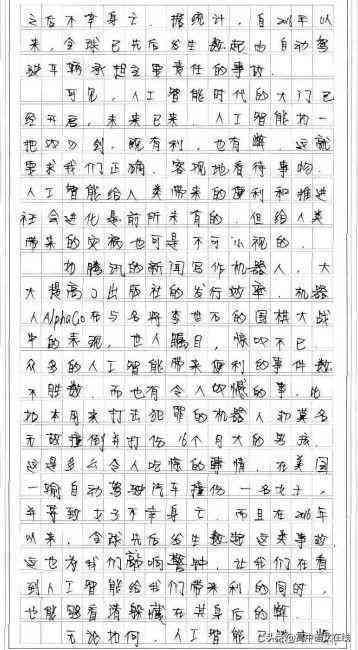 之后不幸身亡。据统计，自2016年以
来，全球已先后发生数起由自动驾
驶车辆承担主要责任的事故。
可见，人工智能时代的大门已
经开启，未来已来，人工智能如一
把双刃剑，既有利，也有弊，这就
要求我们正确、客观地看待事物。
人工智能给人类带来的便利和推进
社会进化是前所未有的，但给人类
带来的灾祸也可是不可小视的。
如腾讯的新闻写作机器人，大
大提高了出版社的发行效率，机器
人AlphaGo在与名将李世石的围棋大战
中的表现，世人瞩目，惊叹不已
众多的人工智能带来便利的事件数
不胜数，而也有令人叹憾的事，比
如本用来打击犯罪的机器人却莫名
无故撞倒并打伤16个月大的男孩，
这是多么令人吃惊的事情，在美国
一辆自动驾驶汽车撞伤一名女士，
并导致女子不幸身亡，而且在2016年
以来，全球先后发生数起这类事故，
这也为我们敲响警钟，让我们在看
到人工智能给我们带来利的同时，
也能够看清躲藏在其身后的弊。
无论如何，人工智能已
头条@高中语文在线